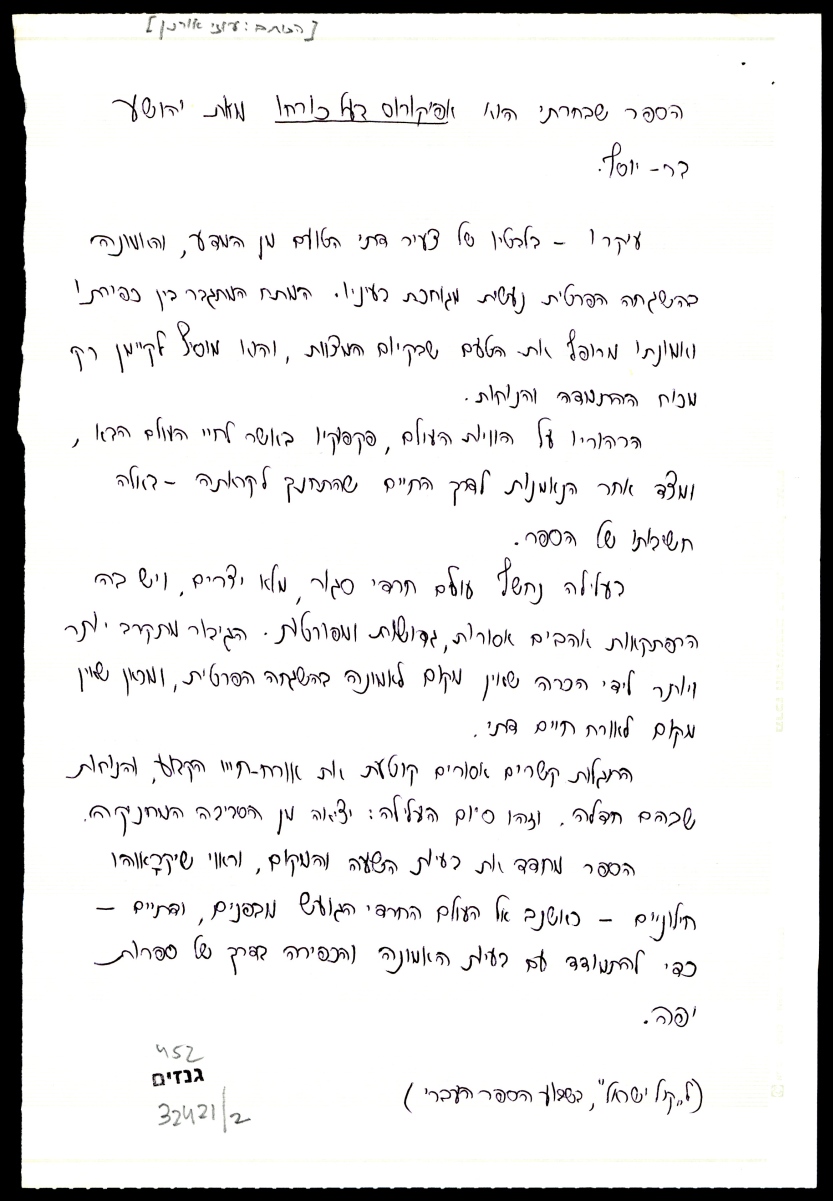 [הכותב: עוזי אורנן]
הספר שבחרתי הוא אפיקורוס בעל כורחו מאת יהושע
בר-יוסף.
עיקרו – בלבטיו של צעיר דתי הטועם מן המדע, והאמונה
בהשגחה הפרטית נעשית מגוחכת בעיניו. המתח המתגבר בין כפירתו
ואמונתו מרופף את הטעם שבקיום המצוות, והוא מוסיף לקיימן רק
מכוח ההתמדה והנוחות.
הרהוריו על הוויות העולם, פקפוקיו באשר לחיי העולם הבא,
ומצד אחר הנאמנות לדרך החיים שהתחנך לקראתה – באלה
חשיבותו של הספר.
בעלילה נחשף עולם חרדי סגור, מלא יצרים, ויש בה
הרפתקאות אהבים אסורות, גדושות ומפורטות. הגיבור מתקרב יותר
ויותר לידי הכרה שאין מקום לאמונה בהשגחה הפרטית, ומכאן שאין
מקום לאורח חיים דתי.
התגלות קשרים אסורים קוטעת את אורח-חייו הקבוע, והנוחות
שבהם חדלה. וזהו סיום העלילה: יציאה מן הסביבה המחניקה.
הספר מחדד את בעית השעה והמקום, וראוי שיקראוהו
חילוניים – כאשנב אל העולם החרדי הגועש מבפנים, ודתיים –
כדי להתמודד עם בעית האמונה והכפירה בדרך של ספרות
יפה.
(ל"קול ישראל", בשבוע הספר העברי)
452
גנזים
32421/2